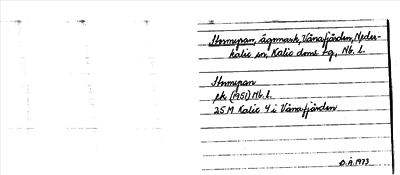 Hornepan, ägomark, Vånafjärden, Neder-
kalix sn, Kalix doms lg, Nb. l.
Hornepan
ek (1951) Nb. l.
25M Kalix 4 i Vånafjärden
O.Å. 1973